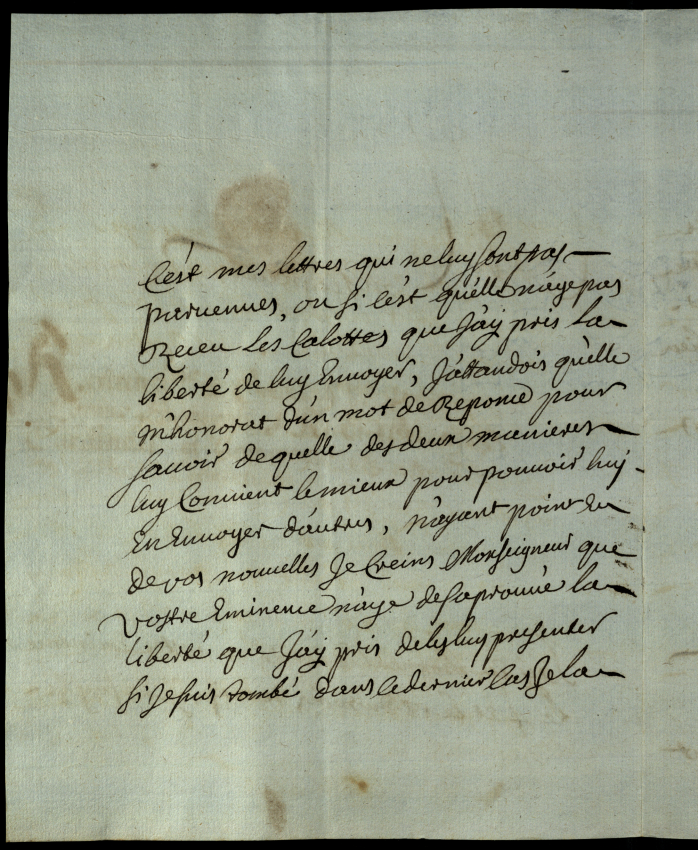 C'est mes lettres qui ne luy sont pas
paruenues, ou si c'est qu'elle n'aye pas
Receu les Calottes que J'ay pris la
liberté de luy Enuoyer, J'attandois qu'elle
m'honorat d'un mot de Reponce pour
sauoir de quelle des deux manieres
luy Conuient le mieux pour pouuoir luy
En Enuoyer d'autres, n'ayant point Eu
de vos nouuelles Je Creins Monseigneur que
vostre Eminence n'aye desaprouué la
liberté que J'ay pris de les luy presenter
si Je suis tombé dans ce dernier Cas Je la